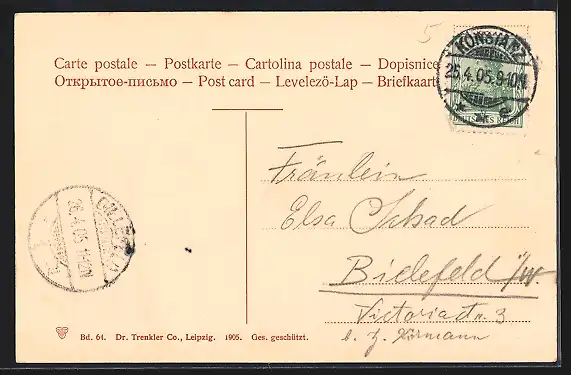 5
Carte postale – Postkarte – Cartolina postale – Dopisnice
Открытое-письмо – Post card – Levelező-Lap – Briefkaart
KONSTANZ
25.4.05.9-10N
DEUTSCHES REICH
Fräulein
Elsa Schad
Bielefeld i/w.
Victoriastr. 3
b. H. Hörmann
26.4.05
Bd. 64. Dr. Trenkler Co., Leipzig. 1905. Ges. geschützt.